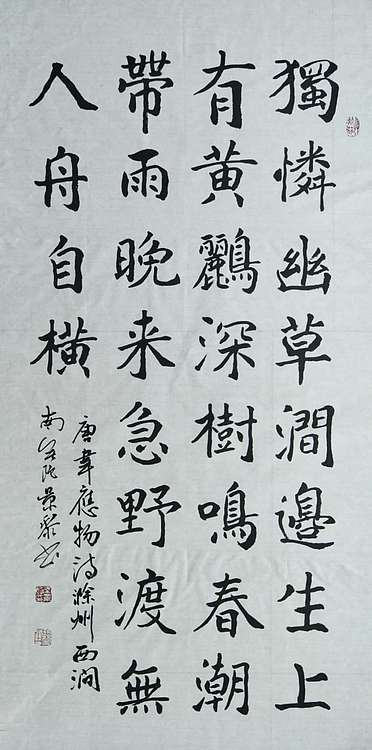 獨憐幽草澗邊生上
有黄鸝深樹鳴春潮
帶雨晚来急野渡無
人舟自橫
唐韋應物诗滁州西涧
南景书